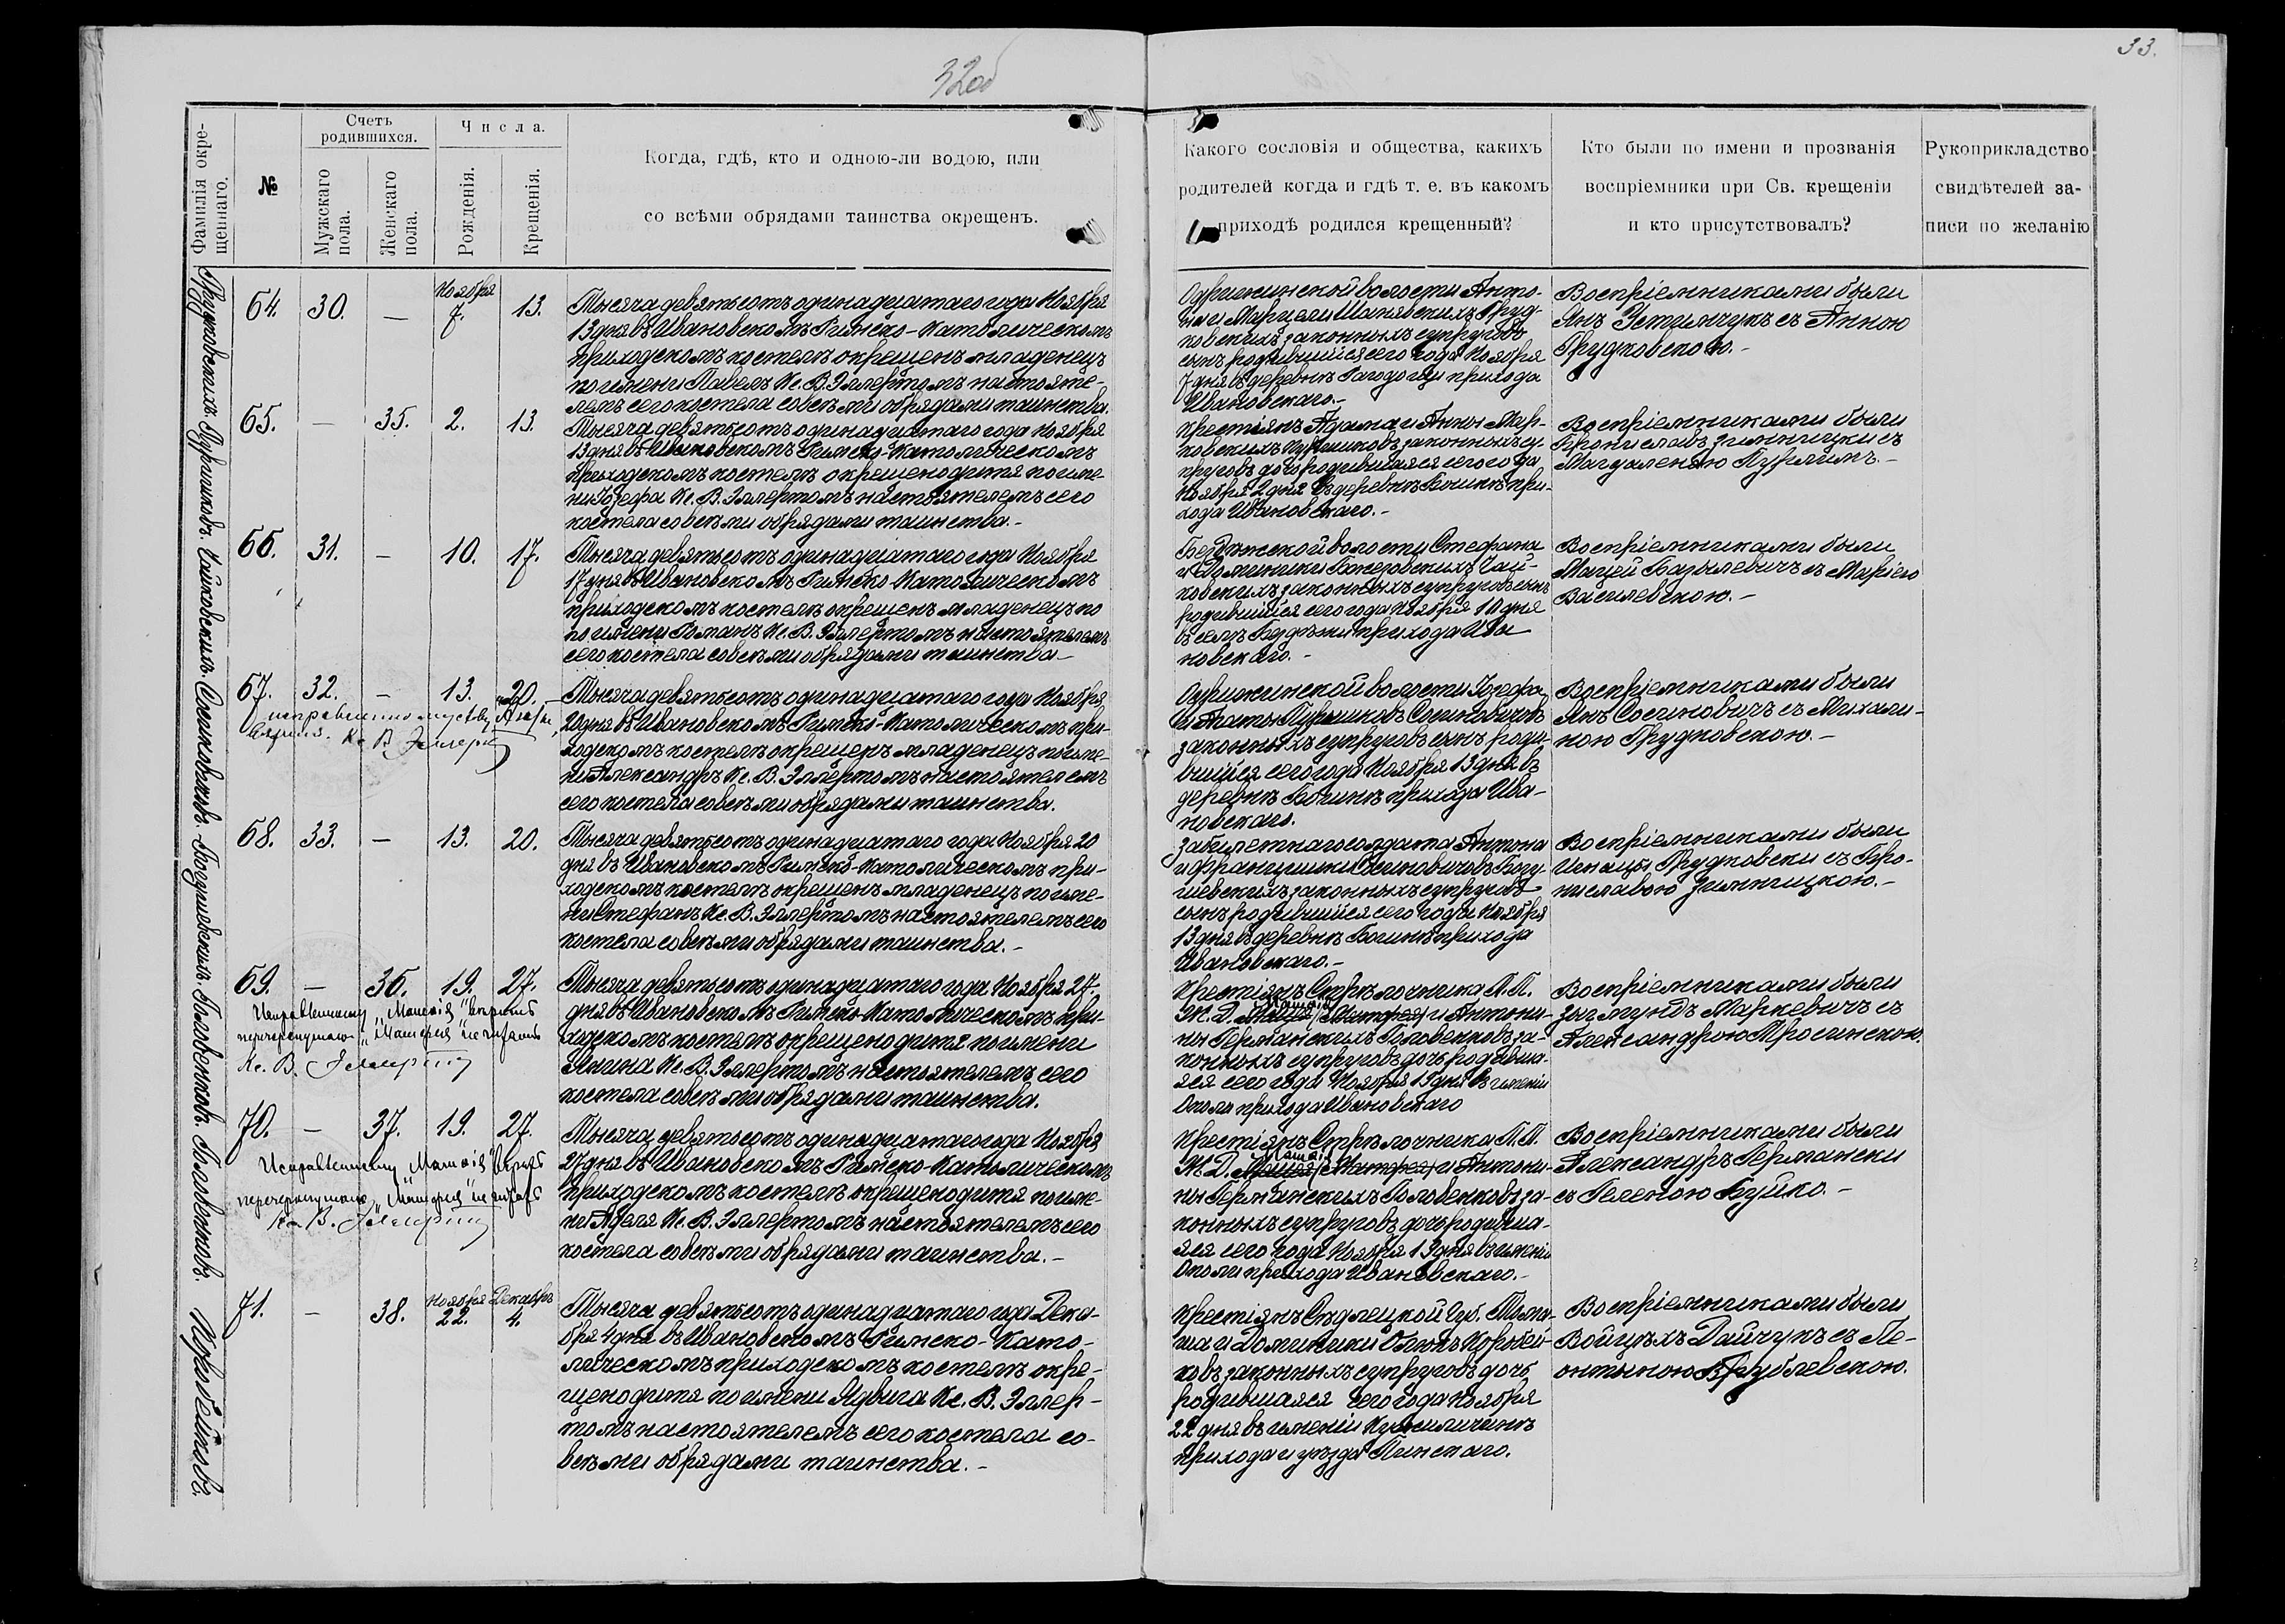 32об
33.
Фамилія окре-
щеннаго.
№
Счетъ
родившихся.
Мужскаго
пола.
Женскаго
пола.
Числа.
Рожденія.
Крещенія.
Когда, гдѣ, кто и одною-ли водою, или
со всѣми обрядами таинства окрещенъ.
Какого сословія и общества, какихъ
родителей когда и гдѣ т. е. въ какомъ
приходѣ родился крещенный?
Кто были по имени и прозванія
воспріемники при Св. крещеніи
и кто присутствовалъ?
Рукоприкладство
свидѣтелей за-
писи по желанію
Грудковскихъ
64. 30. — Ноября 7. 13.
Тысяча девятьсотъ одинадцатаго года Ноября
13 дня въ Ивановскомъ Римско-Католическомъ
приходскомъ костелѣ окрещенъ младенецъ
по имени Павелъ Кс. В. Эллертомъ настояте-
лемъ сего костела совсѣми обрядами таинства.
волости Анто-
на и Шанявскихъ Груд-
ковскихъ законныхъ супруговъ
сынъ родившійся сего года Ноября
7 дня въ деревнѣ прихода
Ивановскаго.-
Воспріемниками были
Янъ Устимчукъ съ Анною
Грудковскою.-
65. — 35. 2. 13.
Тысяча девятьсотъ одинадцатаго года Ноября
13 дня въ Ивановскомъ Римско-Католическомъ
приходскомъ костелѣ окрещено дитя по име-
ни Іозефа Кс. В. Эллертомъ настоятелемъ сего
костела совсѣми обрядами таинства.-
Крестьянъ Адама и Анны
ковскихъ законныхъ су-
пруговъ дочь родившаяся сего года
Ноября 2 дня въ деревнѣ при-
хода Ивановскаго.-
Воспріемниками были
Брониславъ Зимницки съ
Магдаленою
66. 31. — 10. 17.
Тысяча девятьсотъ одинадцатаго года Ноября
17 дня въ Ивановскомъ Римско-Католическомъ
приходскомъ костелѣ окрещенъ младенецъ по
по имени Романъ Кс. В. Эллертомъ настоятелемъ
сего костела совсѣми обрядами таинства-
волости Стефана
и Доминики Чай-
ковскихъ законныхъ супруговъ сынъ
родившійся сего года Ноября 10 дня
въ селѣ прихода Ива
новскаго.-
Воспріемниками были
Мацей Базылевичъ съ Маріею
Василевскою.-
67. 32. — 13. 20.
Кс. В. Эллертъ
Тысяча девятьсотъ одинадцатаго года Ноября
20 дня въ Ивановскомъ Римско-Католическомъ при-
ходскомъ костелѣ окрещенъ младенецъ по име-
ни Александръ Кс. В. Эллертомъ настоятелемъ
сего костела совсѣми обрядами таинства.
волости Іозефа
и Агаты Сосиновичовъ
законныхъ супруговъ сынъ роди-
вшійся сего года Ноября 13 дня въ
деревнѣ Богинѣ прихода Ива-
новскаго.
Воспріемниками были
Янъ Сосиновичъ съ Михали-
ною Грудковскою.-
68. 33. — 13. 20.
Тысяча девятьсотъ одинадцатаго года Ноября 20
дня въ Ивановскомъ Римско-Католическомъ при-
ходскомъ костелѣ окрещенъ младенецъ по име-
ни Стефанъ Кс. В. Эллертомъ настоятелемъ сего
костела совсѣми обрядами таинства.-
Забилетнаго солдата Антона
и Францишки Сосиновичовъ Богу-
шевскихъ законныхъ супруговъ
сынъ родившійся сего года Ноября
13 дня въ деревнѣ Богинѣ прихода
Ивановскаго.-
Воспріемниками были
Игнацы Грудковски съ Бро-
ниславою Зимницкою.-
69. — 36. 19. 27.
Исправленному „Матвія“ вѣрить
перечеркнутаго „Матфея“ не читать
Кс. В. Эллертъ
Тысяча девятьсотъ одинадцатаго года Ноября 27-
дня въ Ивановскомъ Римско-Католическомъ при-
ходскомъ костелѣ окрещено дитя по имени
Янина Кс. В. Эллертомъ настоятелемъ сего
костела совсѣми обрядами таинства.
Крестьянъ Стрѣлочника П. П.
Ж. Д. (Матфея) и Антони-
ны Германскихъ Головенковъ за-
конныхъ супруговъ дочь родивша-
яся сего года Ноября 19 дня въ имѣніи
Ополи прихода Ивановскаго
Воспріемниками были
Зыгмундъ Маркевичъ съ
Александрою Просинскою.
70. — 37. 19. 27.
Исправленному „Матвія“ вѣрить
перечеркнутаго „Матфея“ не читать
Кс. В. Эллертъ
Тысяча девятьсотъ одинадцатаго года Ноября
27 дня въ Ивановскомъ Римско-Католическомъ
приходскомъ костелѣ окрещено дитя по име-
ни Аделя Кс. В. Эллертомъ настоятелемъ сего
костела совсѣми обрядами таинства.-
Крестьянъ Стрѣлочника П. П.
Ж. Д. (Матфея) и Антони-
ны Германскихъ Головенковъ за-
конныхъ супруговъ дочь родивша-
яся сего года Ноября 19 дня въ имѣніи
Ополи прихода Ивановскаго.-
Воспріемниками были
Александръ Германски
съ Геленою Буйко.-
71. — 38. Ноября 22. Декабря 4.
Тысяча девятьсотъ одинадцатаго года Дека-
бря 4 дня въ Ивановскомъ Римско-Като-
лическомъ приходскомъ костелѣ окре-
щено дитя по имени Ядвига Кс. В. Эллер-
томъ настоятелемъ сего костела со-
всѣми обрядами таинства.-
Крестьянъ Сѣдлецкой Губ. Тома-
ша и Доминики Коробей-
ковъ законныхъ супруговъ дочь
родившаяся сего года Ноября
22 дня въ имѣніи
прихода и уѣзда Пинскаго.
Воспріемниками были
Войцѣхъ Дайчукъ съ Ле-
онтыною Врублевскою.